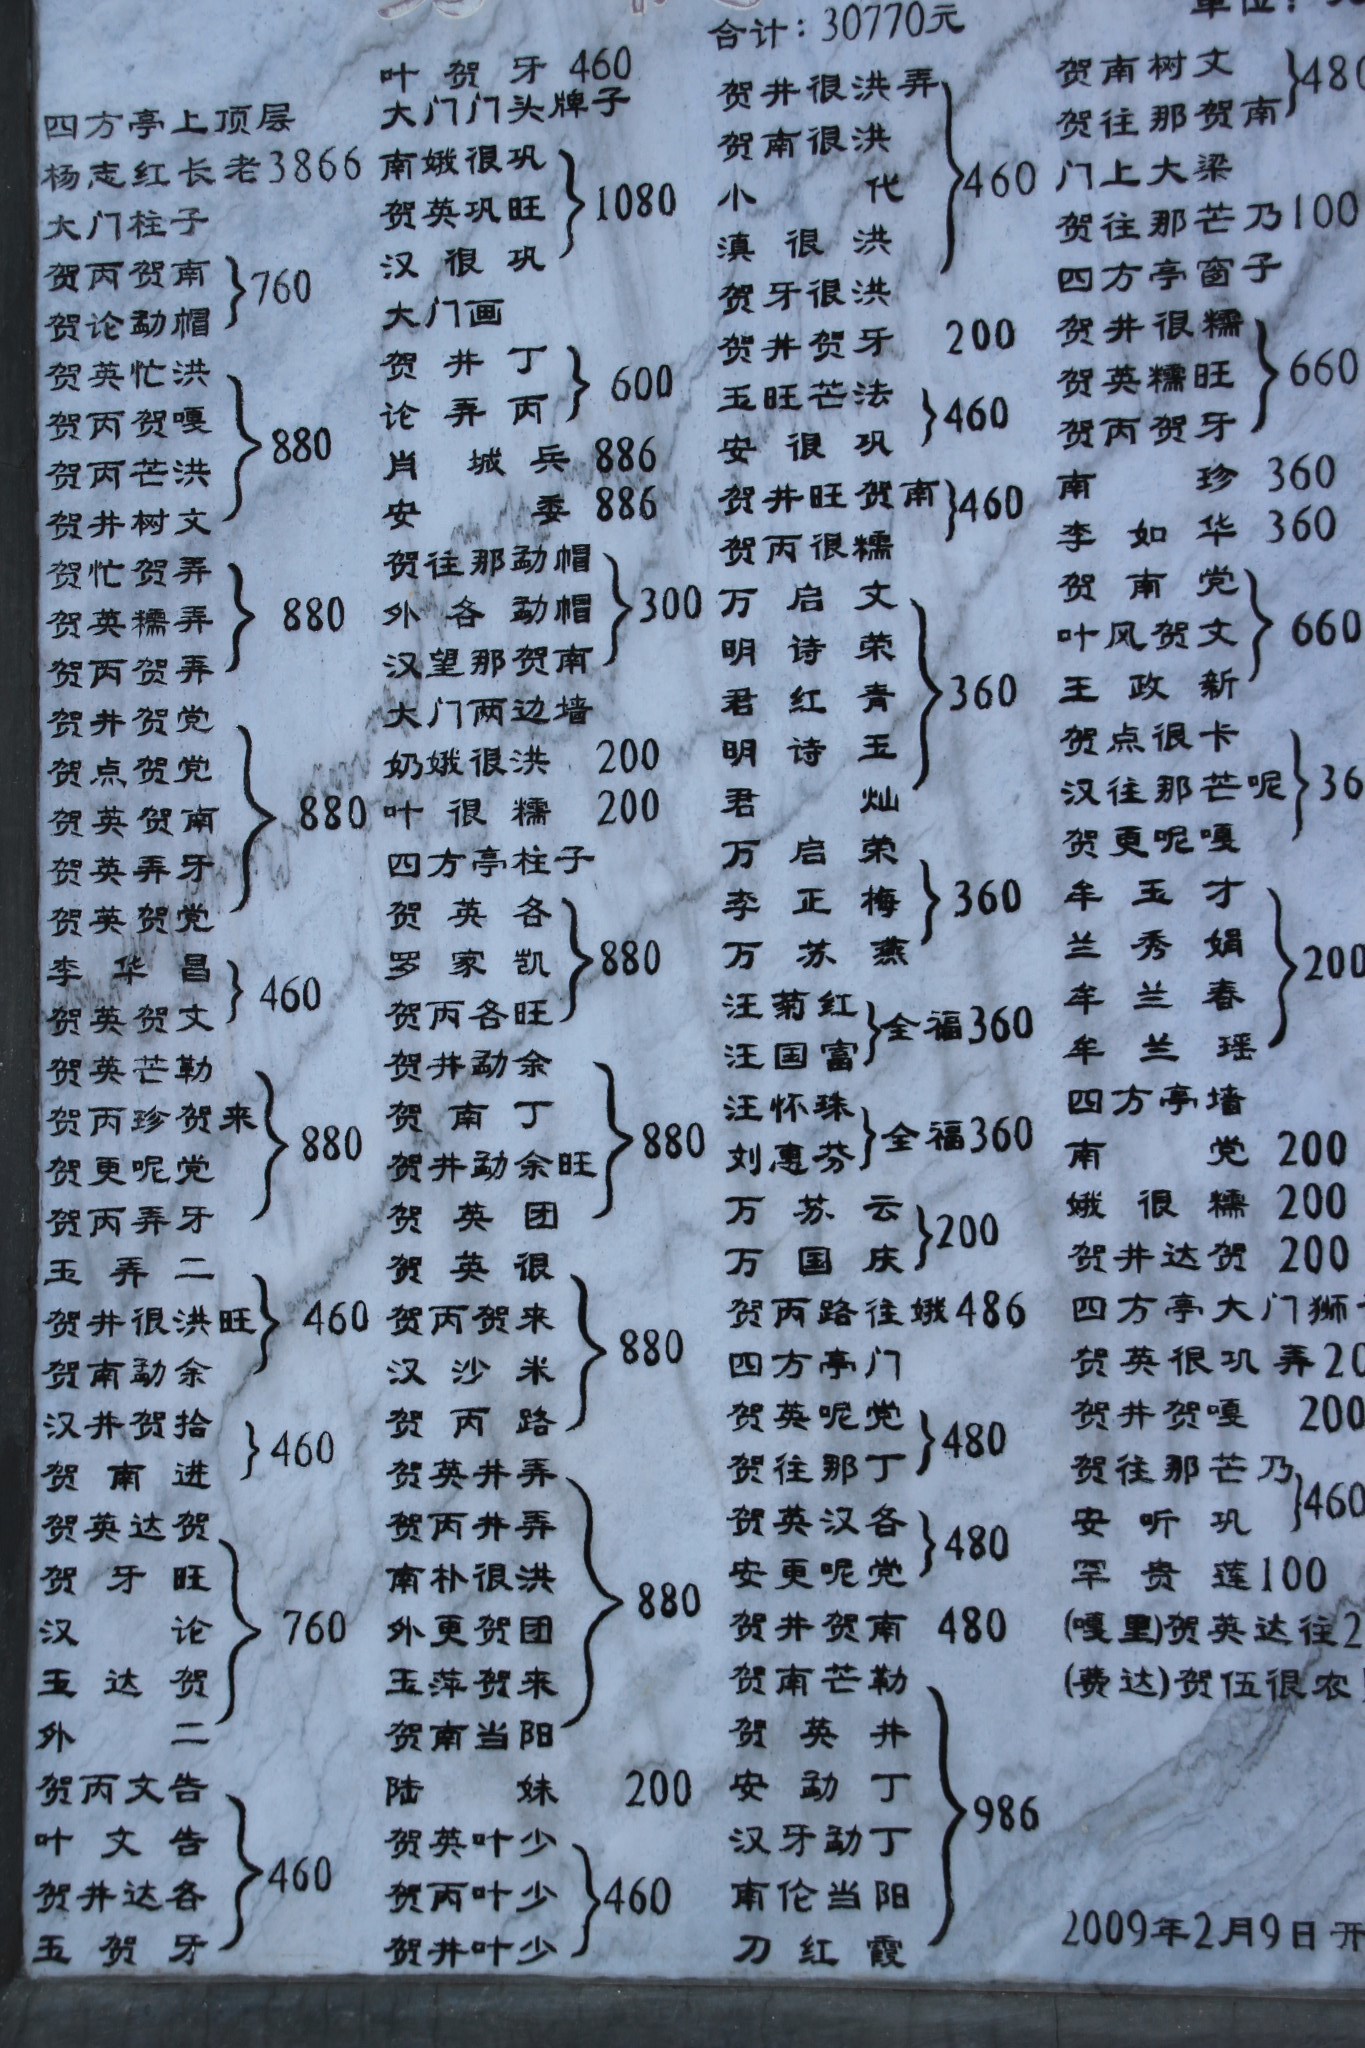 合计：30770元
四方亭上顶层
杨志红长老3866
大门柱子
贺丙贺南
贺论勐帽
}760
贺英忙洪
贺丙贺嘎
贺丙芒洪
贺井树文
}880
贺忙贺弄
贺英糯弄
贺丙贺弄
}880
贺井贺党
贺点贺党
贺英贺南
贺英弄牙
贺英贺党
}880
李华昌
贺英贺文
}460
贺英芒勒
贺丙珍贺来
贺更呢党
贺丙弄牙
}880
玉弄二
贺井很洪旺
贺南勐余
}460
汉井贺拾
贺南进
}460
贺英达贺
贺牙旺
汉论
玉达贺
外二
}760
贺丙文告
叶文告
贺井达各
玉贺牙
}460
叶贺牙460
大门门头牌子
南娥很巩
贺英巩旺
汉很巩
}1080
大门画
贺井丁
论弄丙
}600
肖城兵886
安委886
贺往那勐帽
外各勐帽
汉望那贺南
}300
大门两边墙
奶娥很洪200
叶很糯200
四方亭柱子
贺英各
罗家凯
贺丙各旺
}880
贺井勐余
贺南丁
贺井勐余旺
贺英团
}880
贺英很
贺丙贺来
汉沙米
贺丙路
}880
贺英井弄
贺丙井弄
南朴很洪
外更贺团
玉萍贺来
贺南当阳
}880
陆妹200
贺英叶少
贺丙叶少
贺井叶少
}460
贺井很洪弄
贺南很洪
小代
滇很洪
}460
贺牙很洪
贺井贺牙200
玉旺芒法
安很巩
}460
贺井旺贺南
贺丙很糯
}460
万启文
明诗荣
君红青
明诗玉
君灿
}360
万启荣
李正梅
万苏燕
}360
汪菊红
汪国富
}全福360
汪怀珠
刘惠芬
}全福360
万苏云
万国庆
}200
贺丙路往娥486
四方亭门
贺英呢党
贺往那丁
}480
贺英汉各
安更呢党
}480
贺井贺南480
贺南芒勒
贺英井
安勐丁
汉牙勐丁
南伦当阳
刀红霞
}986
贺南树文
贺往那贺南
}480
门上大梁
贺往那芒乃100
四方亭窗子
贺井很糯
贺英糯旺
贺丙贺牙
}660
南珍360
李如华360
贺南党
叶风贺文
王政新
}660
贺点很卡
汉往那芒呢
贺更呢嘎
}36
牟玉才
兰秀娟
牟兰春
牟兰瑶
}200
四方亭墙
南党200
娥很糯200
贺井达贺200
四方亭大门狮
贺英很巩弄20
贺井贺嘎200
贺往那芒乃
安听巩
}460
罕贵莲100
(嘎里)贺英达往2
(费达)贺伍很农
2009年2月9日开